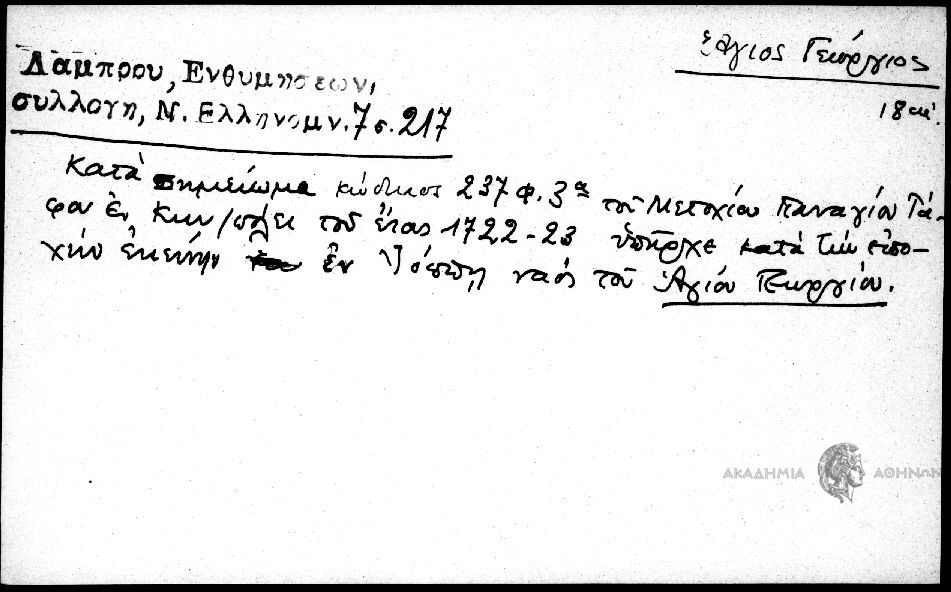 Ἅγιος Γεώργιος
18 αἰ.
Λάμπρου, Ενθυμησεων,
συλλογη, Ν. Ελληνομν. 7 σ. 217
Κατὰ σημείωμα κώδικος 237 φ. 3α τοῦ Μετοχίου Παναγίου Τά-
φου ἐν Κων/πόλει τοῦ ἔτους 1722-23 ὑπῆρχε κατὰ τὴν ἐπο-
χὴν ἐκείνην ἐν Ἰόππῃ ναὸς τοῦ Ἁγίου Γεωργίου.
ΑΚΑΔΗΜΙΑ ΑΘΗΝΩΝ